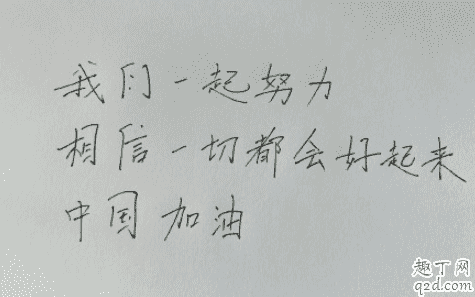 我们一起努力
相信一切都会好起来
中国加油
趣丁网
q2d.com